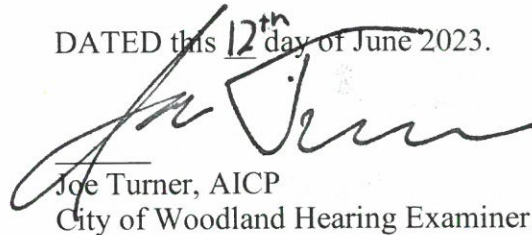 DATED this 12th day of June 2023.
Joe Turner
Joe Turner, AICP
City of Woodland Hearing Examiner